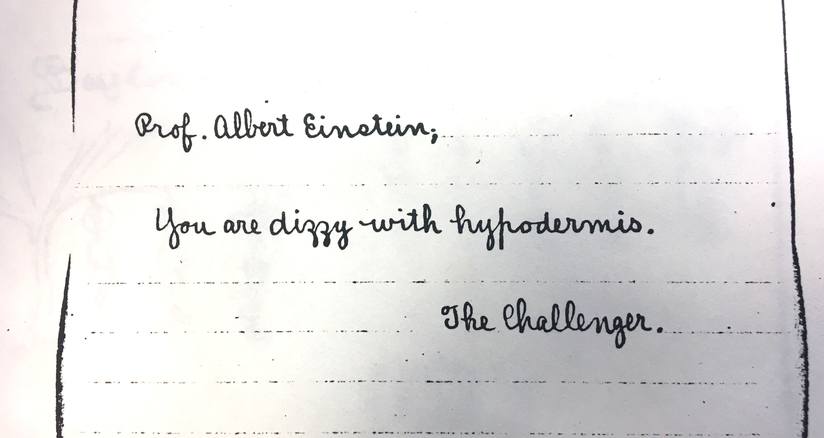 Prof. Albert Einstein;
You are dizzy with hypodermis.
The Challenger.